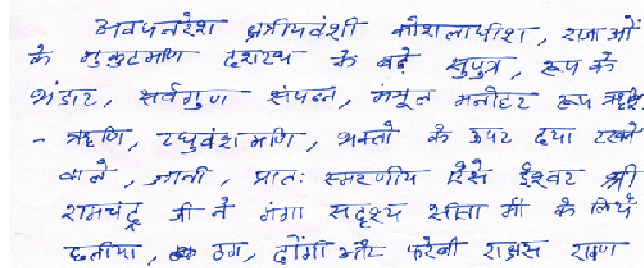 अवधनरेश क्षत्रीयवंशी कोशलाधीश, राजाओं
के मुकुटमणि दशरथ के बड़े सुपुत्र, रूप के
भंडार, सर्वगुण संपन्न, मंजुल मनोहर रूप
मणि, रघुवंशमणि, भक्तो के ऊपर दया रखने
वाले, ज्ञानी, प्रातः स्मरणीय ऐसे ईश्वर श्री
रामचंद्र जी ने गंगा सदृश्य सीता माँ के लिये
छलीया, ठग, ढोंगी और फरेबी राक्षस रावण